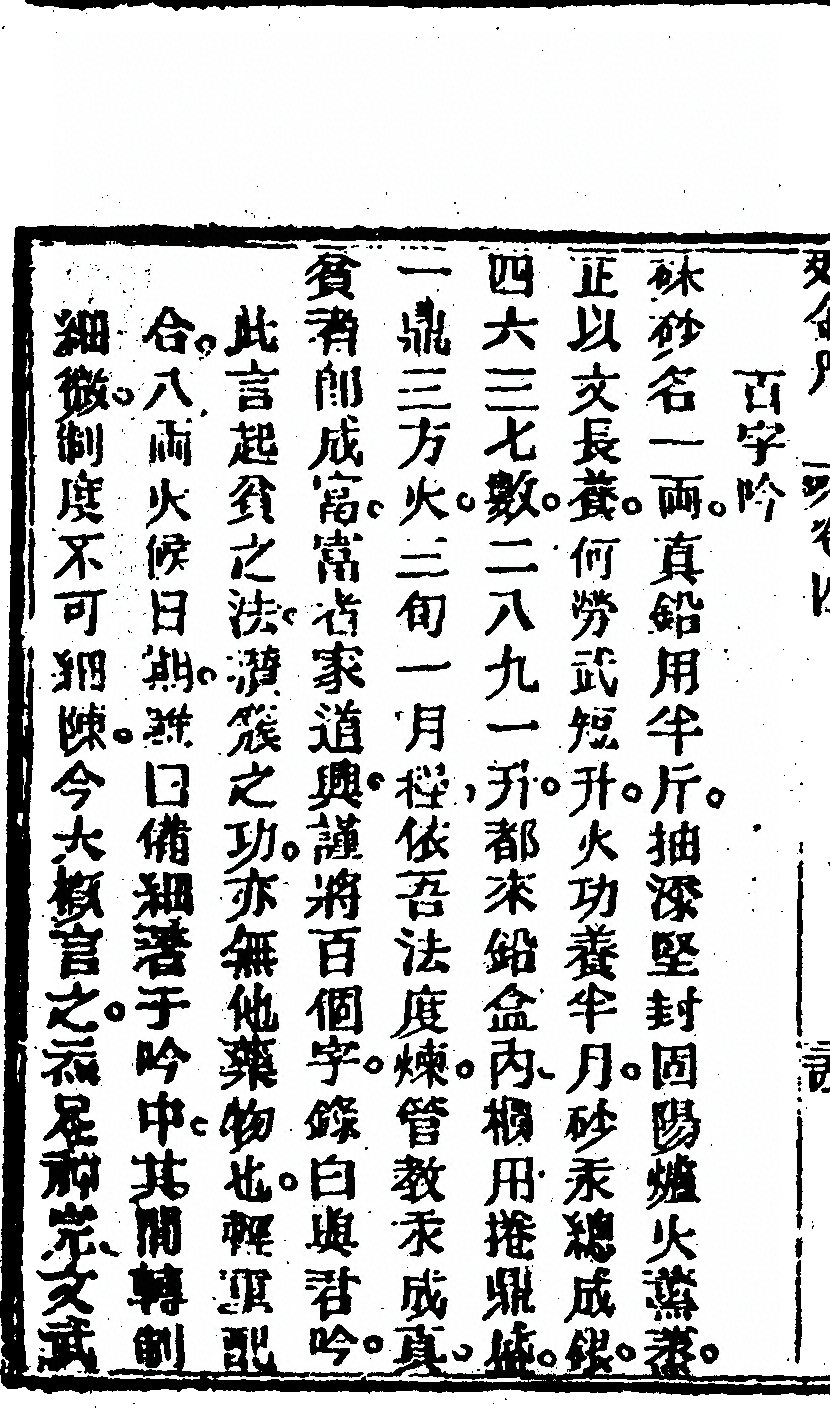 百字吟
硃砂名一兩真鉛用半斤抽添堅封固陽爐火蒸蒸
正以文長養何勞武短升火功養半月砂汞總成銀
四六三七數二八九一升都來鉛盒內櫃用捲鼎盛
一鼎三方火三旬一月極依吾法度煉管教汞成真
貧者即成富富者家道興謹將百個字錄白與君吟
此言起貧之法濟餐之功亦無他藥物也輕重配
合八兩火候日期雖曰備細著于吟中其間轉制
細微制度不可細陳今大概言之亦足神完文武